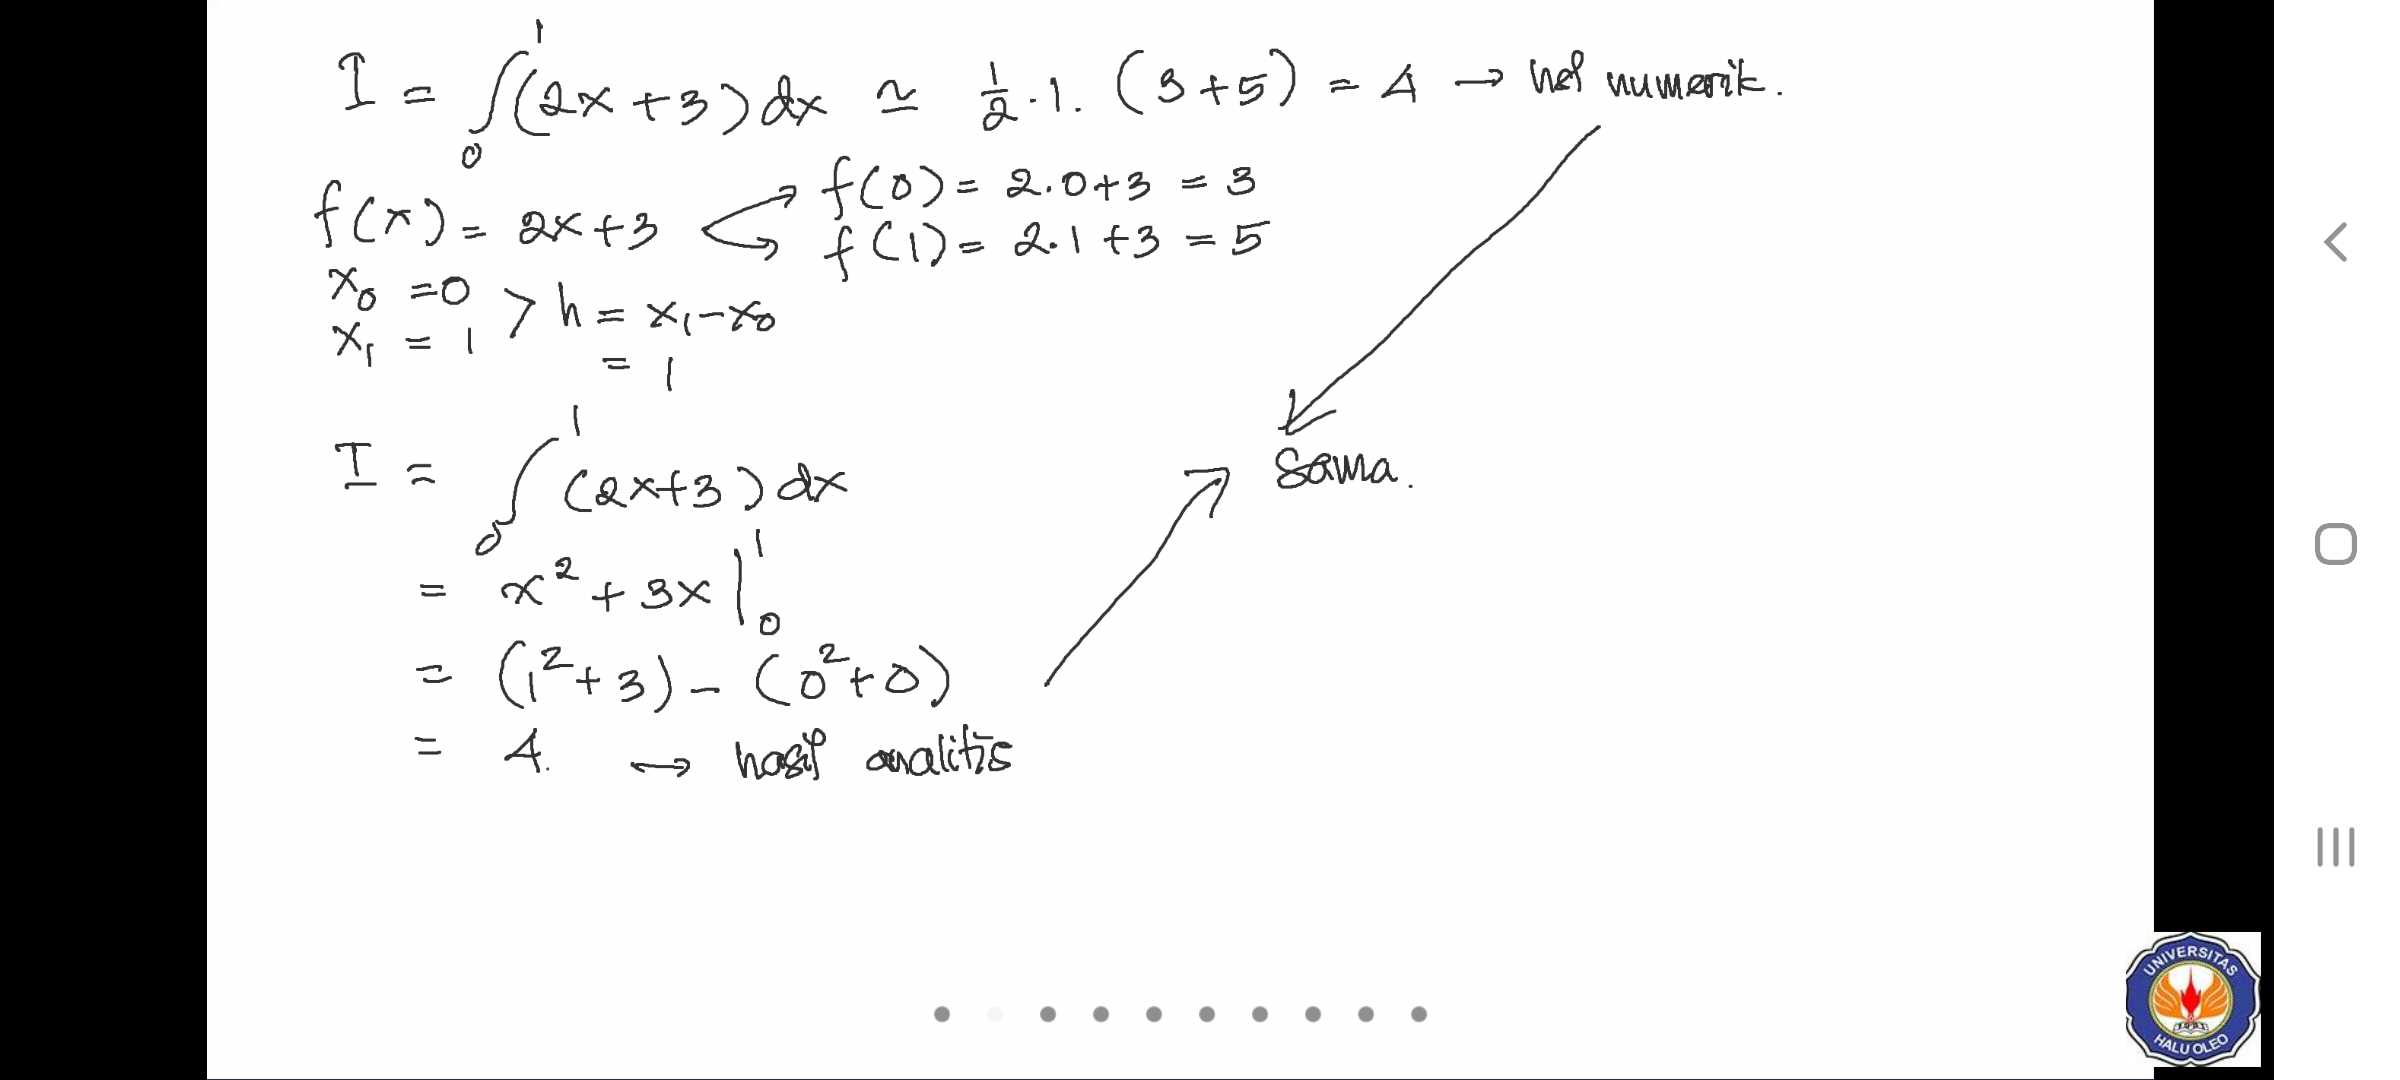 I = ∫₀¹ (2x + 3) dx ≃ 1/2 · 1 · (3 + 5) = 4 → numerik.
f(x) = 2x + 3
f(0) = 2.0 + 3 = 3
f(1) = 2.1 + 3 = 5
x₀ = 0
x₁ = 1
> h = x₁ - x₀
= 1
I = ∫₀¹ (2x + 3) dx
= x² + 3x |₀¹
= (1² + 3) - (0² + 0)
= 4. → hasil analitis
Sama.
UNIVERSITAS
HALU OLEO